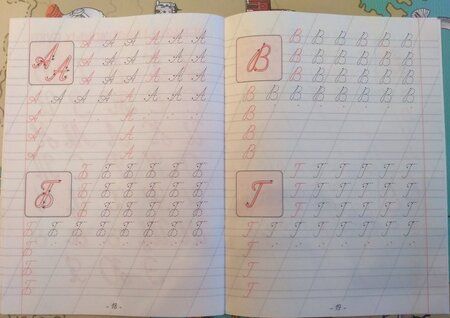 А А
А А А А А А
А А А А А А
А А А А А А
А А А А А А А А
А А
А А
А А
Б
Б Б Б Б Б Б
Б Б Б Б Б Б
Б Б Б Б Б Б
Б Б Б Б Б Б Б Б
Б
Б
Б
- 18 -
В
В В В В В В
В В В В В В
В В В В В В
В В В В В В В В
В
В
В
Г
Г Г Г Г Г Г
Г Г Г Г Г Г
Г Г Г Г Г Г
Г Г Г Г Г Г Г Г
Г
Г
Г
- 19 -